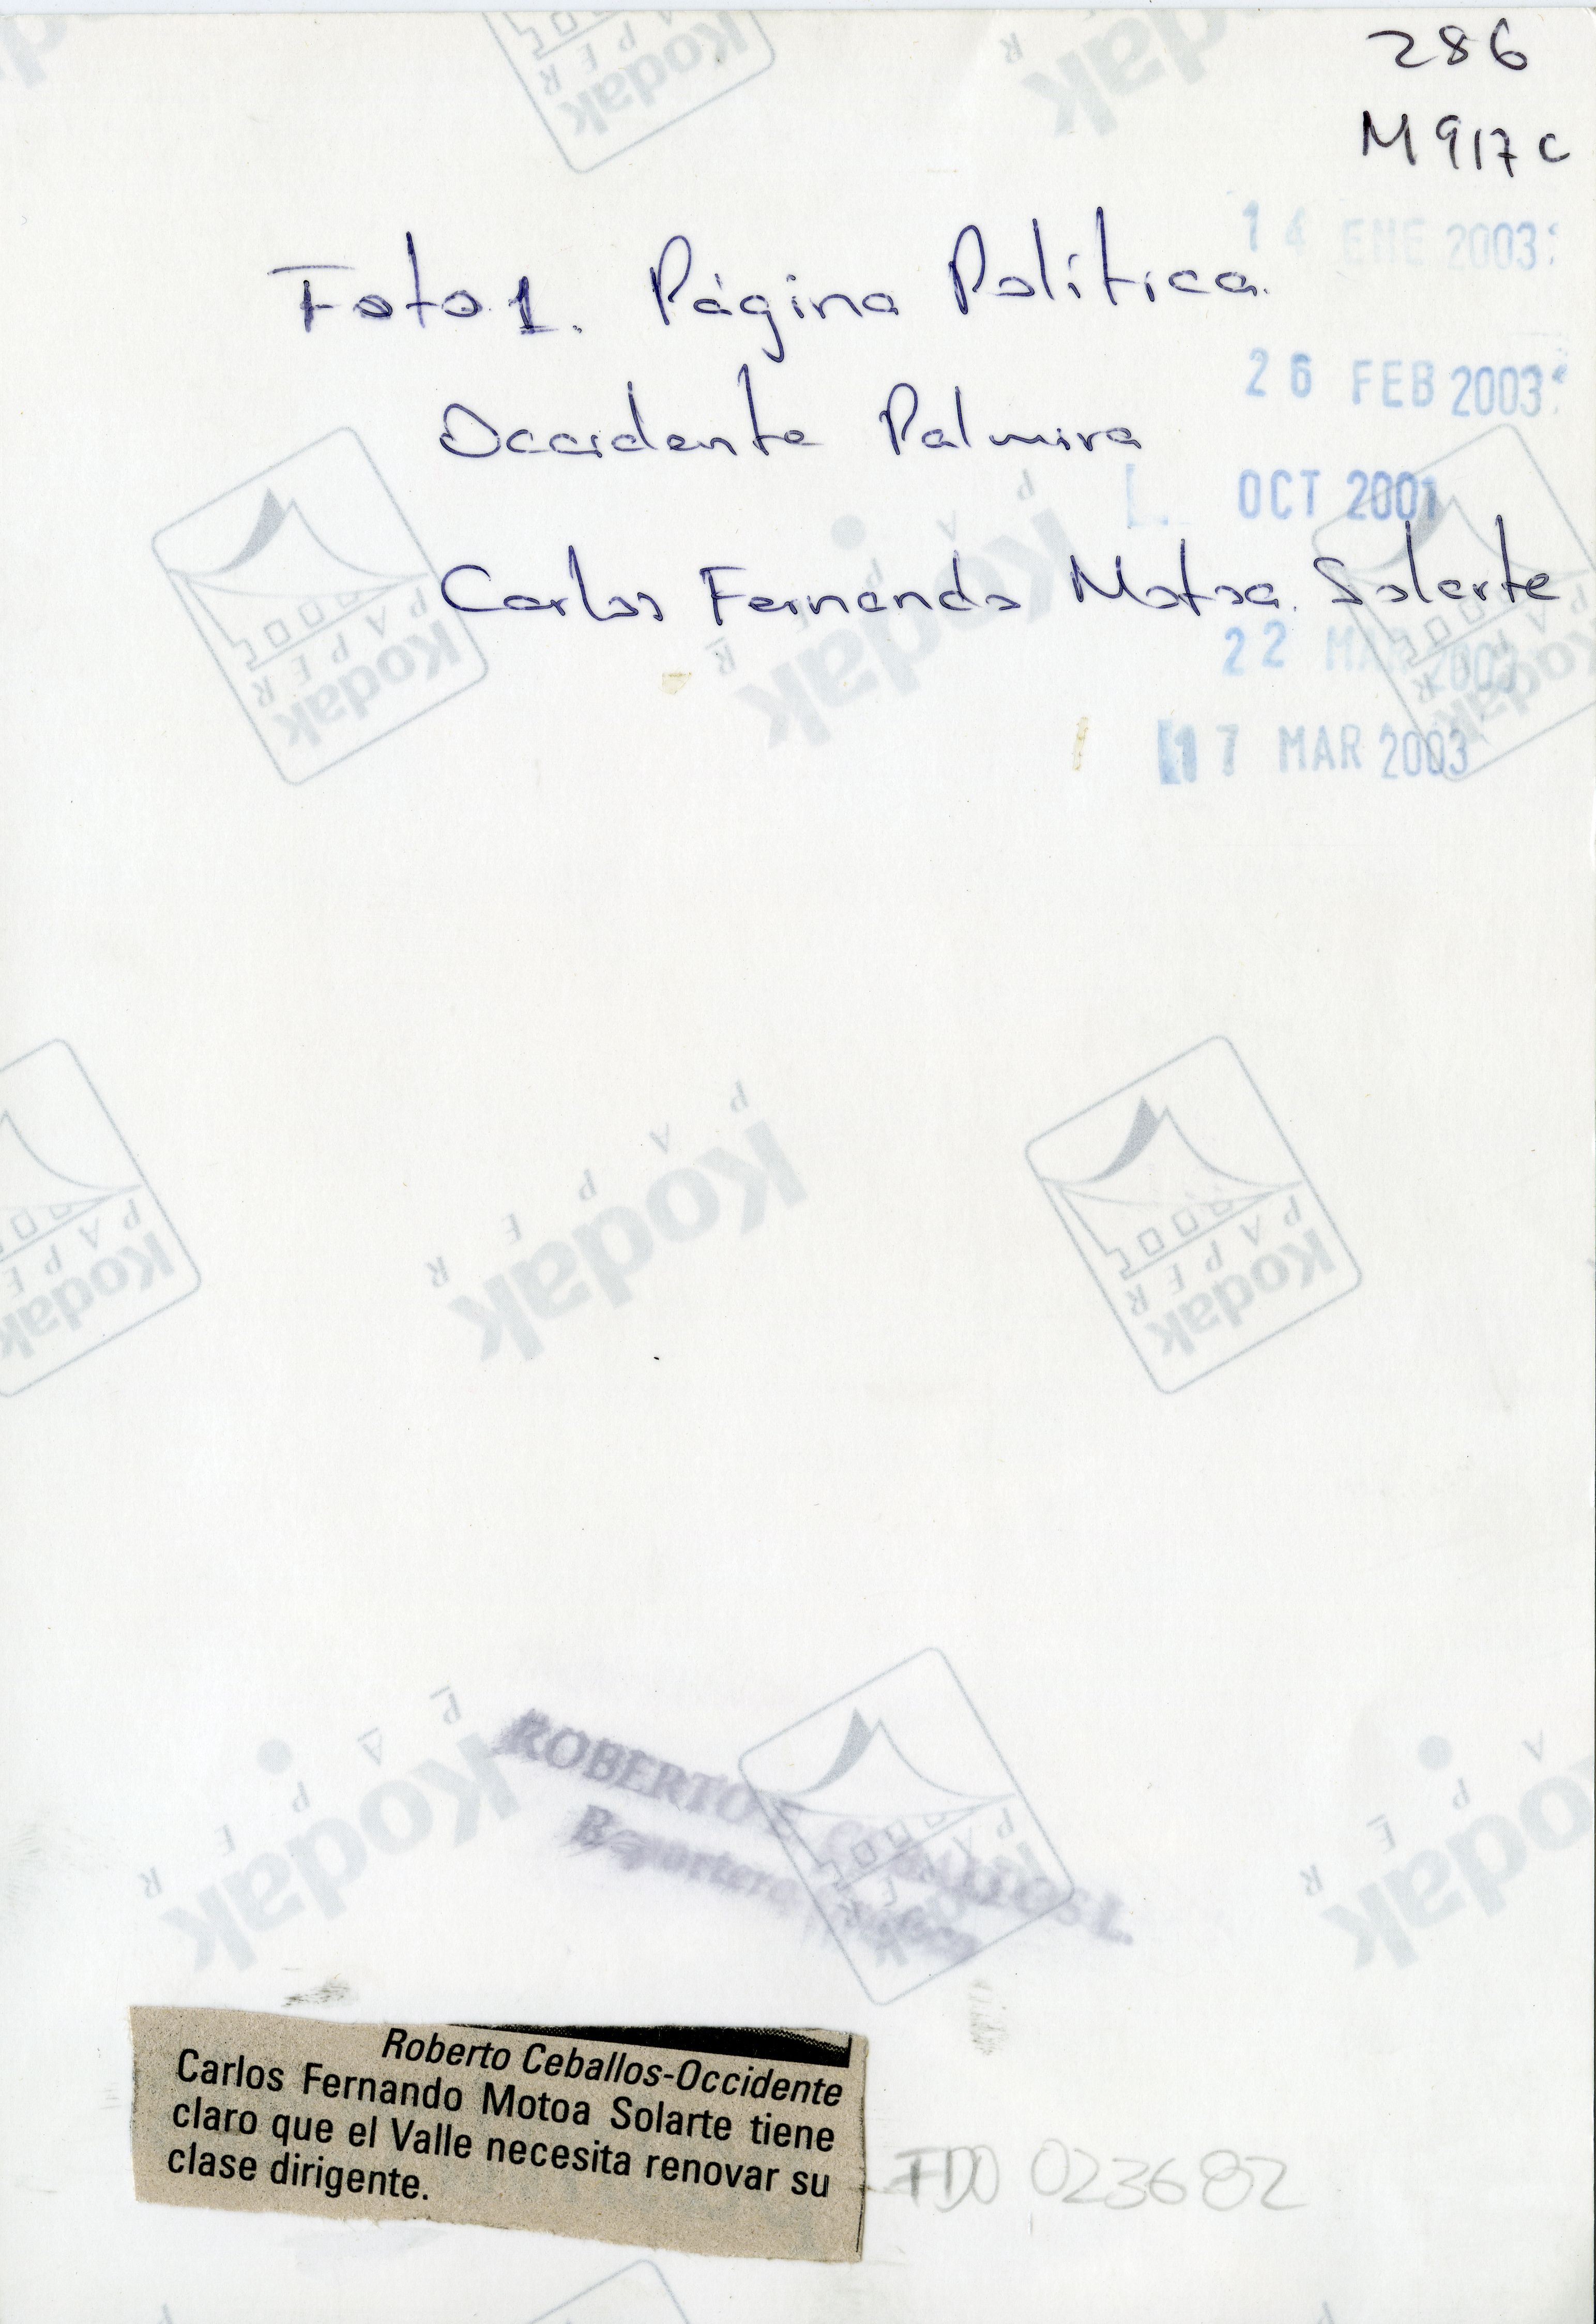 286
M917c
14 ENE 2003
Foto 1. Página Política
26 FEB 2003
Occidente Palmira
OCT 2001
Carlos Fernando Motoa Solarte
22 MAR 2003
17 MAR 2003
Kodak
PAPER
ROBERTO CEBALLOS L.
Reportero
Roberto Ceballos-Occidente
Carlos Fernando Motoa Solarte tiene
claro que el Valle necesita renovar su
clase dirigente.
FDO 023682